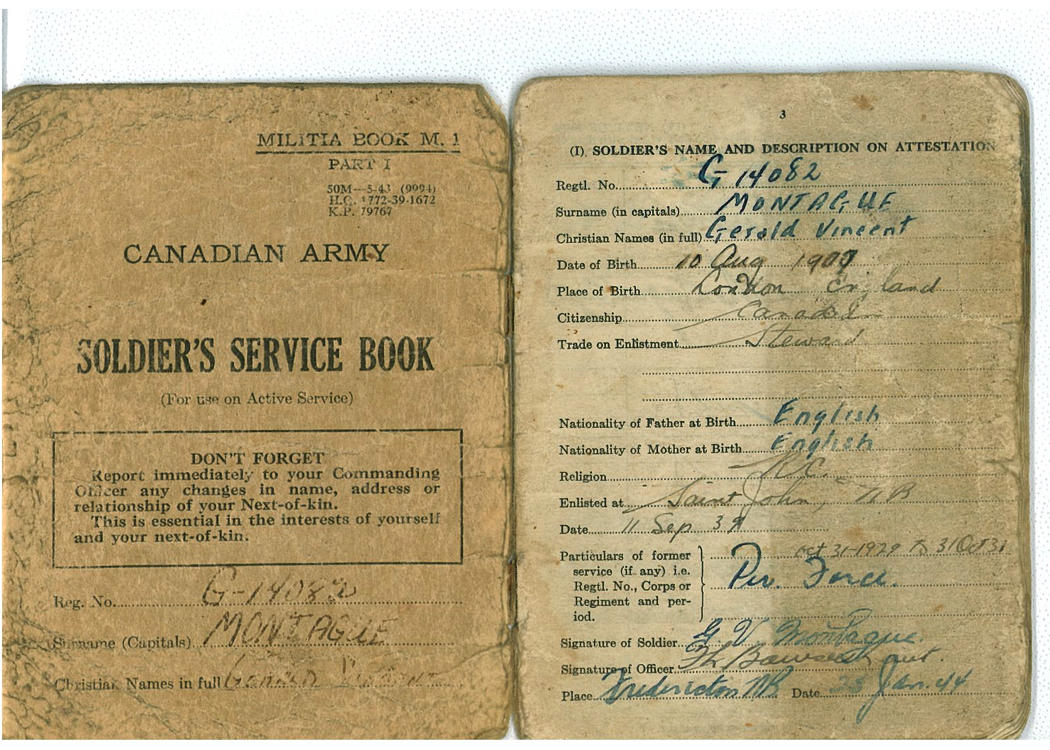 MILITIA BOOK M. 1
PART I
50M—5-43 (9994)
H.Q. 1772-39-1672
K.P. 79767
CANADIAN ARMY
SOLDIER'S SERVICE BOOK
(For use on Active Service)
DON'T FORGET
Report immediately to your Commanding
Officer any changes in name, address or
relationship of your Next-of-kin.
This is essential in the interests of yourself
and your next-of-kin.
Reg. No. G-14082
Surname (Capitals) MONTAGUE
Christian Names in full
3
(I) SOLDIER'S NAME AND DESCRIPTION ON ATTESTATION
Regtl. No. G 14082
Surname (in capitals) MONTAGUE
Christian Names (in full) Gerald Vincent
Date of Birth 10 Aug
Place of Birth London England
Citizenship
Trade on Enlistment Steward
Nationality of Father at Birth English
Nationality of Mother at Birth English
Religion R.C.
Enlisted at Saint John, NB
Date 11 Sep 39
Particulars of former
service (if any) i.e.
Regtl. No., Corps or
Regiment and per-
iod.
Oct 31-1929 To 31 Oct 31
Per. Force.
Signature of Soldier G V Montague
Signature of Officer
Place Fredericton NB Date Jan. 44